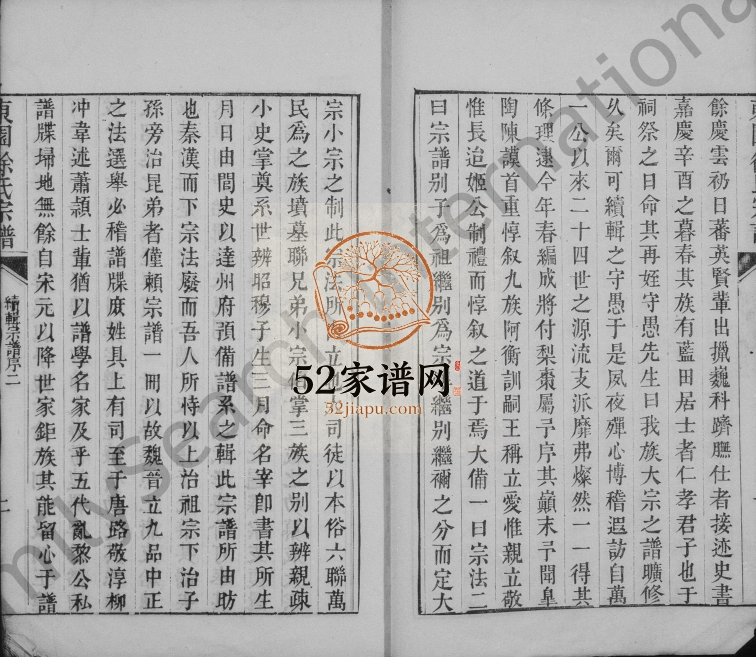 餘慶雲礽日蕃英賢輩出擢巍科躋膴仕者接迹史書
嘉慶辛酉之暮春其族有藍田居士者仁孝君子也于
祠祭之日命其再姪守愚先生曰我族大宗之譜曠修
久矣爾可續輯之守愚于是夙夜殫心博稽遐訪自萬
一公以來二十四世之源流支派靡弗燦然一一得其
條理遂今年春編成將付梨棗屬予序其巔末予聞臯
陶陳謨首重惇叙九族阿衡訓嗣王稱立愛惟親立敬
惟長迨姬公制禮而惇叙之道于焉大備一曰宗法二
曰宗譜别子爲祖繼别爲宗繼别繼禰之分而定大
宗小宗之制此宗法所立也司徒以本俗六聯萬
民爲之族墳墓聯兄弟小宗伯掌三族之别以辨親疎
小史掌奠系世辨昭穆子生三月命名宰卽書其所生
月日由閭史以達州府預備譜系之輯此宗譜所由昉
也秦漢而下宗法廢而吾人所恃以上治祖宗下治子
孫旁治昆弟者僅賴宗譜一冊以故魏晉立九品中正
之法選舉必稽譜牒庶姓具上有司至于唐路敬淳柳
冲韋述蕭頴士輩猶以譜學名家及乎五代亂黎公私
譜牒掃地無餘自宋元以降世家鉅族其能留心于譜
東園徐氏宗譜
續輯宗譜序二
52家谱网
52jiapu.com